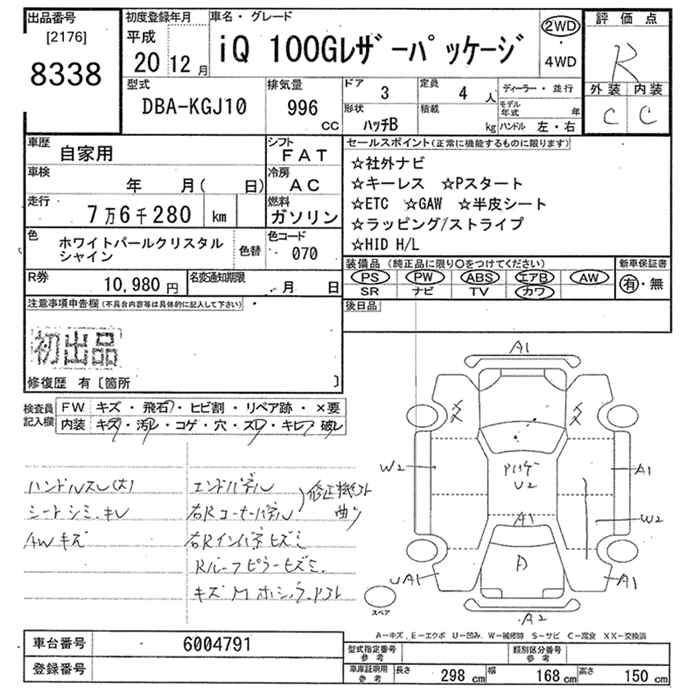 出品番号
[2176]
8338
初度登録年月
平成
20 12月
車名・グレード
iQ 100Gレザーパッケージ
2WD
・
4WD
評価点
R
外装 内装
C C
型式
DBA-KGJ10
排気量
996
cc
ドア
3
定員
4 人
形状
ハッチB
積載
kg
ディーラー・並行
モデル年式 年
ハンドル 左・右
車歴
自家用
シフト
FAT
車検
年 月( 日)
冷房
AC
走行
7万6千280 km
燃料
ガソリン
色
ホワイトパールクリスタル
シャイン
色替
色コード
070
R券
10,980円
名変通知期限
月 日
セールスポイント(正常に機能するものに限ります)
☆社外ナビ
☆キーレス ☆Pスタート
☆ETC ☆GAW ☆半皮シート
☆ラッピング/ストライプ
☆HID H/L
装備品 (純正品に限り○をつけてください)
PS PW ABS エアB AW
SR ナビ TV カワ
新車保証書
有・無
後日品
注意事項申告欄(不具合内容等は具体的に記入して下さい)
初出品
修復歴 有〔箇所 〕
検査員
記入欄
FW キズ・飛石・ヒビ割・リペア跡・×要
内装 キズ・汚レ・コゲ・穴・スレ・キレ・破レ
ハンドルスレ(大)
シートシミ、キレ
AWキズ
エンドパネル
右Rコーナーパネル
修正機
曲り
右Rインパネヒズミ
Rルーフピラーヒズミ、
A1
W2
U2
A1
W2
A1
A
UA1
A1
A2
スペア
A-キズ, E-エクボ U-凹み, W-補修跡 S-サビ C-腐食 XX-交換済
車台番号
6004791
登録番号
型式指定番号
参考
類別区分番号
参考
車庫証明用
参考
長さ 298 cm
幅 168 cm
高さ 150 cm